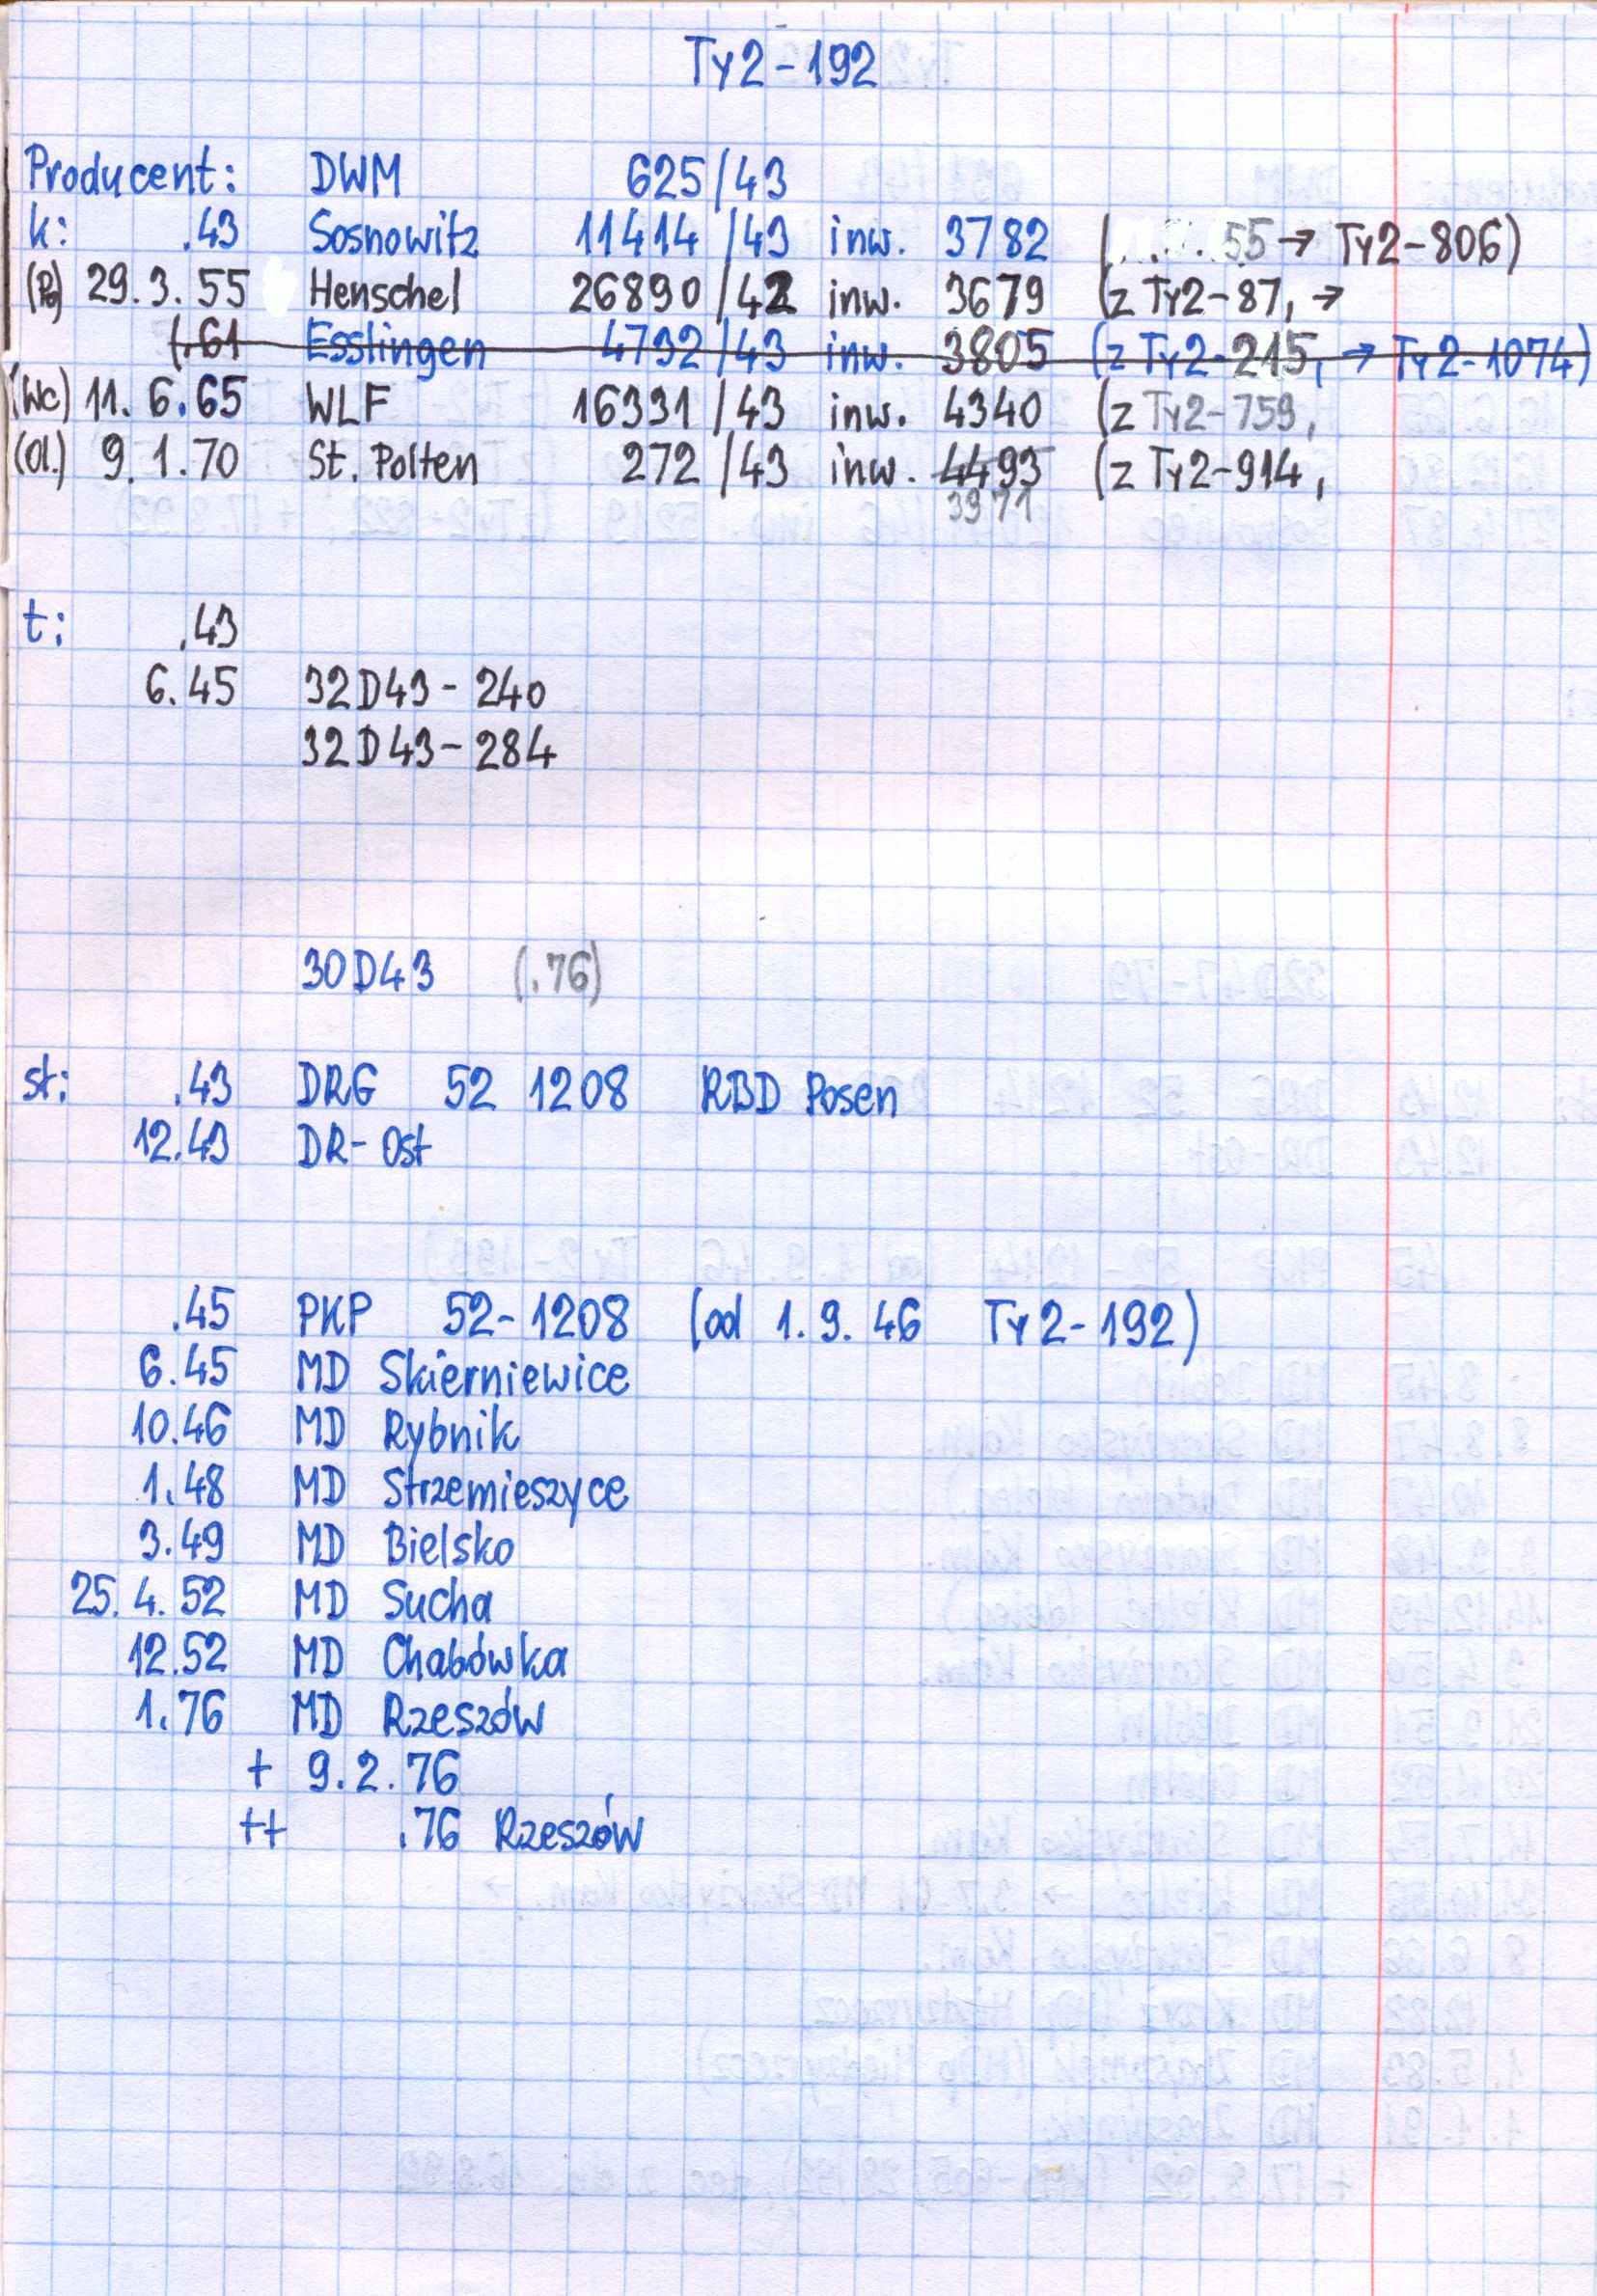 Ty2-192
Producent: DWM 625/43
k: .43 Sosnowitz 11414/43 inw. 3782 ( 55 → Ty2-806)
(Po) 29.3.55 Henschel 26890/42 inw. 3679 (z Ty2-87, →
(.61 Esslingen 4792/43 inw. 3805 (z Ty2-215, → Ty2-1074)
(Wc) 11.6.65 WLF 16331/43 inw. 4340 (z Ty2-759,
(Ol.) 9.1.70 St. Polten 272/43 inw. 4493 (z Ty2-914,
3971
t: .43
6.45 32D43-240
32D43-284
30D43 (.76)
st: .43 DRG 52 1208 RBD Posen
12.43 DR-Ost
.45 PKP 52-1208 (od 1.9.46 Ty2-192)
6.45 MD Skierniewice
10.46 MD Rybnik
1.48 MD Strzemieszyce
3.49 MD Bielsko
25.4.52 MD Sucha
12.52 MD Chabówka
1.76 MD Rzeszów
+ 9.2.76
++ .76 Rzeszów